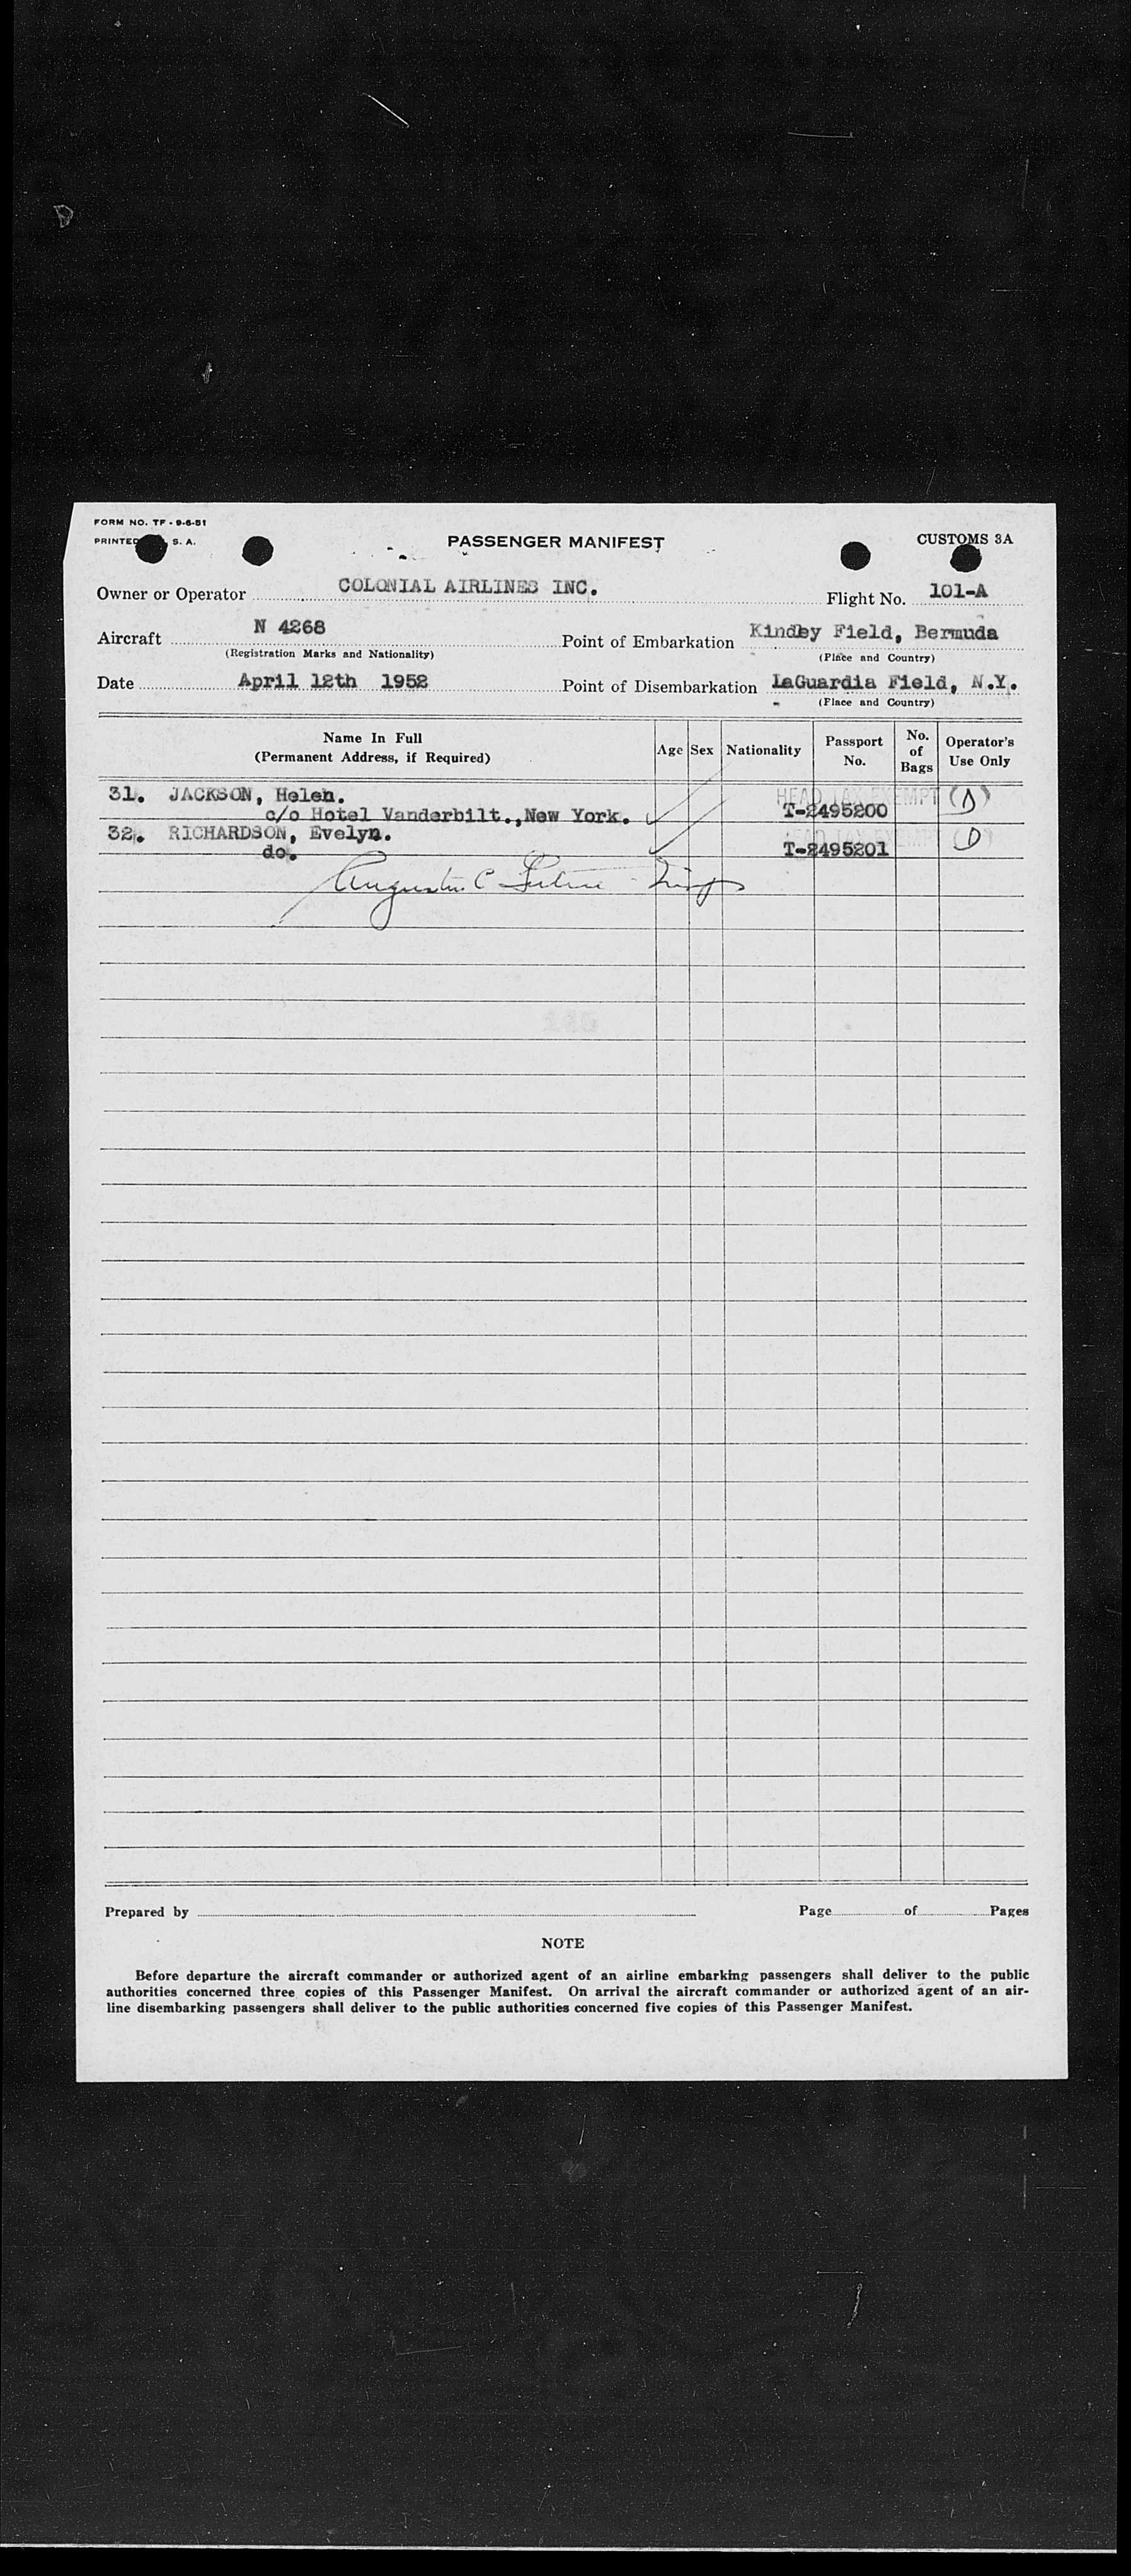 FORM NO. TF - 9-6-51
PRINTED S. A.
PASSENGER MANIFEST
CUSTOMS 3A
Owner or Operator COLONIAL AIRLINES INC. Flight No. 101-A
Aircraft N 4268 Point of Embarkation Kindley Field, Bermuda
(Registration Marks and Nationality) (Place and Country)
Date April 12th 1952 Point of Disembarkation LaGuardia Field, N.Y.
(Place and Country)
Name In Full
(Permanent Address, if Required)
Age Sex Nationality
Passport
No.
No.
of
Bags
Operator's
Use Only
31. JACKSON, Helen. HEAD TAX EXEMPT (D)
c/o Hotel Vanderbilt.,New York. T-2495200
32. RICHARDSON, Evelyn. HEAD TAX EXEMPT (D)
do. T-2495201
Prepared by Page of Pages
NOTE
Before departure the aircraft commander or authorized agent of an airline embarking passengers shall deliver to the public
authorities concerned three copies of this Passenger Manifest. On arrival the aircraft commander or authorized agent of an air-
line disembarking passengers shall deliver to the public authorities concerned five copies of this Passenger Manifest.